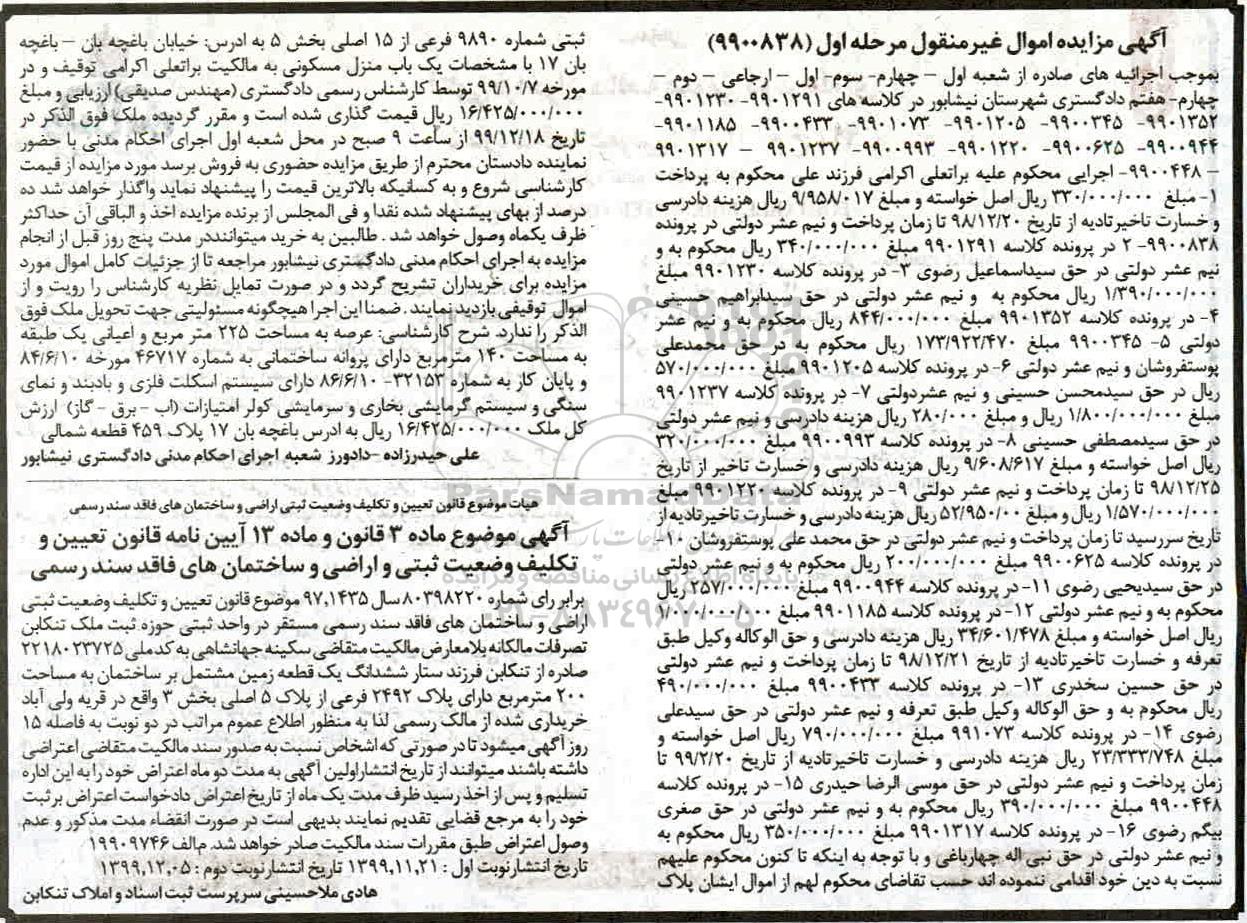 آگهی مزایده اموال غیرمنقول مرحله اول (۹۹۰۰۸۳۸)
بموجب اجرائیه های صادره از شعبه اول – چهارم- سوم- اول – ارجاعی – دوم –
چهارم- هفتم دادگستری شهرستان نیشابور در کلاسه های ۹۹۰۱۲۹۱- ۹۹۰۱۲۳۰-
۹۹۰۱۳۵۲- ۹۹۰۰۳۴۵- ۹۹۰۱۲۰۵- ۹۹۰۱۰۷۳- ۹۹۰۰۴۳۳- ۹۹۰۱۱۸۵-
۹۹۰۰۹۴۴- ۹۹۰۰۶۲۵- ۹۹۰۱۲۲۰- ۹۹۰۰۹۹۳- ۹۹۰۱۲۳۷ – ۹۹۰۱۳۱۷
– ۹۹۰۰۴۴۸- اجرایی محکوم علیه براتعلی اکرامی فرزند علی محکوم به پرداخت
۱- مبلغ ۳۳۰/۰۰۰/۰۰۰ ریال اصل خواسته و مبلغ ۹/۹۵۸/۰۱۷ ریال هزینه دادرسی
و خسارت تاخیرتادیه از تاریخ ۹۸/۱۲/۲۰ تا زمان پرداخت و نیم عشر دولتی در پرونده
۹۹۰۰۸۳۸- ۲ در پرونده کلاسه ۹۹۰۱۲۹۱ مبلغ ۳۴۰/۰۰۰/۰۰۰ ریال محکوم به و
نیم عشر دولتی در حق سیداسماعیل رضوی ۳- در پرونده کلاسه ۹۹۰۱۲۳۰ مبلغ
۱/۳۹۰/۰۰۰/۰۰۰ ریال محکوم به و نیم عشر دولتی در حق سیدابراهیم حسینی
۴- در پرونده کلاسه ۹۹۰۱۳۵۲ مبلغ ۸۴۴/۰۰۰/۰۰۰ ریال محکوم به و نیم عشر
دولتی ۵- ۹۹۰۰۳۴۵ مبلغ ۱۷۳/۹۲۲/۴۷۰ ریال محکوم به در حق محمدعلی
پوستفروشان و نیم عشر دولتی ۶- در پرونده کلاسه ۹۹۰۱۲۰۵ مبلغ ۵۷۰/۰۰۰/۰۰۰
ریال در حق سیدمحسن حسینی و نیم عشردولتی ۷- در پرونده کلاسه ۹۹۰۱۲۳۷
مبلغ ۱/۸۰۰/۰۰۰/۰۰۰ ریال و مبلغ ۲۸۰/۰۰۰ ریال هزینه دادرسی و نیم عشر دولتی
در حق سیدمصطفی حسینی ۸- در پرونده کلاسه ۹۹۰۰۹۹۳ مبلغ ۳۲۰/۰۰۰/۰۰۰
ریال اصل خواسته و مبلغ ۹/۶۰۸/۶۱۷ ریال هزینه دادرسی و خسارت تاخیر از تاریخ
۹۸/۱۲/۲۵ تا زمان پرداخت و نیم عشر دولتی ۹- در پرونده کلاسه ۹۹۰۱۲۲۰ مبلغ
۱/۵۷۰/۰۰۰/۰۰۰ ریال و مبلغ ۵۲/۹۵۰/۰۰ ریال هزینه دادرسی و خسارت تاخیرتادیه از
تاریخ سررسید تا زمان پرداخت و نیم عشر دولتی در حق محمد علی پوستفروشان ۱۰-
در پرونده کلاسه ۹۹۰۰۶۲۵ مبلغ ۲۰۰/۰۰۰/۰۰۰ ریال محکوم به و نیم عشر دولتی
در حق سیدیحیی رضوی ۱۱- در پرونده کلاسه ۹۹۰۰۹۴۴ مبلغ ۲۵۷/۰۰۰/۰۰۰ ریال
محکوم به و نیم عشر دولتی ۱۲- در پرونده کلاسه ۹۹۰۱۱۸۵ مبلغ ۱/۰۰۰/۰۰۰/۰۰۰
ریال اصل خواسته و مبلغ ۳۴/۶۰۱/۴۷۸ ریال هزینه دادرسی و حق الوکاله وکیل طبق
تعرفه و خسارت تاخیرتادیه از تاریخ ۹۸/۱۲/۲۱ تا زمان پرداخت و نیم عشر دولتی
در حق حسین سخدری ۱۳- در پرونده کلاسه ۹۹۰۰۴۳۳ مبلغ ۴۹۰/۰۰۰/۰۰۰
ریال محکوم به و حق الوکاله وکیل طبق تعرفه و نیم عشر دولتی در حق سیدعلی
رضوی ۱۴- در پرونده کلاسه ۹۹۱۰۷۳ مبلغ ۷۹۰/۰۰۰/۰۰۰ ریال اصل خواسته و
مبلغ ۲۳/۳۳۳/۷۴۸ ریال هزینه دادرسی و خسارت تاخیرتادیه از تاریخ ۹۹/۲/۲۰ تا
زمان پرداخت و نیم عشر دولتی در حق موسی الرضا حیدری ۱۵- در پرونده کلاسه
۹۹۰۰۴۴۸ مبلغ ۳۹۰/۰۰۰/۰۰۰ ریال محکوم به و نیم عشر دولتی در حق صغری
بیگم رضوی ۱۶- در پرونده کلاسه ۹۹۰۱۳۱۷ مبلغ ۳۵۰/۰۰۰/۰۰۰ ریال محکوم به
و نیم عشر دولتی در حق نبی اله چهارباغی و با توجه به اینکه تا کنون محکوم علیهم
نسبت به دین خود اقدامی ننموده اند حسب تقاضای محکوم لهم از اموال ایشان پلاک
ثبتی شماره ۹۸۹۰ فرعی از ۱۵ اصلی بخش ۵ به ادرس: خیابان باغچه بان – باغچه
بان ۱۷ با مشخصات یک باب منزل مسکونی به مالکیت براتعلی اکرامی توقیف و در
مورخه ۹۹/۱۰/۷ توسط کارشناس رسمی دادگستری (مهندس صدیقی) ارزیابی و مبلغ
۱۶/۴۲۵/۰۰۰/۰۰۰ ریال قیمت گذاری شده است و مقرر گردیده ملک فوق الذکر در
تاریخ ۹۹/۱۲/۱۸ از ساعت ۹ صبح در محل شعبه اول اجرای احکام مدنی با حضور
نماینده دادستان محترم از طریق مزایده حضوری به فروش برسد مورد مزایده از قیمت
کارشناسی شروع و به کسانیکه بالاترین قیمت را پیشنهاد نماید واگذار خواهد شد ده
درصد از بهای پیشنهاد شده نقدا و فی المجلس از برنده مزایده اخذ و الباقی آن حداکثر
ظرف یکماه وصول خواهد شد . طالبین به خرید میتواننددر مدت پنج روز قبل از انجام
مزایده به اجرای احکام مدنی دادگستری نیشابور مراجعه تا از جزئیات کامل اموال مورد
مزایده برای خریداران تشریح گردد و در صورت تمایل نظریه کارشناس را رویت و از
اموال توقیفی بازدید نمایند . ضمنا این اجرا هیچگونه مسئولیتی جهت تحویل ملک فوق
الذکر را ندارد. شرح کارشناسی: عرصه به مساحت ۲۲۵ متر مربع و اعیانی یک طبقه
به مساحت ۱۴۰ مترمربع دارای پروانه ساختمانی به شماره ۴۶۷۱۷ مورخه ۸۴/۶/۱۰
و پایان کار به شماره ۳۲۱۵۳- ۸۶/۶/۱۰ دارای سیستم اسکلت فلزی و بادبند و نمای
سنگی و سیستم گرمایشی بخاری و سرمایشی کولر امتیازات (اب - برق - گاز) ارزش
کل ملک ۱۶/۴۲۵/۰۰۰/۰۰۰ ریال به ادرس باغچه بان ۱۷ پلاک ۴۵۹ قطعه شمالی
علی حیدرزاده -دادورز شعبه اجرای احکام مدنی دادگستری نیشابور
هیات موضوع قانون تعیین و تکلیف وضعیت ثبتی اراضی و ساختمان های فاقد سند رسمی
آگهی موضوع ماده ۳ قانون و ماده ۱۳ آیین نامه قانون تعیین و
تکلیف وضعیت ثبتی و اراضی و ساختمان های فاقد سند رسمی
برابر رای شماره ۸۰۳۹۸۲۲۰ سال ۹۷,۱۴۳۵ موضوع قانون تعیین و تکلیف وضعیت ثبتی
اراضی و ساختمان های فاقد سند رسمی مستقر در واحد ثبتی حوزه ثبت ملک تنکابن
تصرفات مالکانه بلامعارض مالکیت متقاضی سکینه جهانشاهی به کدملی ۲۲۱۸۰۲۳۷۲۵
صادره از تنکابن فرزند ستار ششدانگ یک قطعه زمین مشتمل بر ساختمان به مساحت
۲۰۰ مترمربع دارای پلاک ۲۴۹۲ فرعی از پلاک ۵ اصلی بخش ۳ واقع در قریه ولی آباد
خریداری شده از مالک رسمی لذا به منظور اطلاع عموم مراتب در دو نوبت به فاصله ۱۵
روز آگهی میشود تا در صورتی که اشخاص نسبت به صدور سند مالکیت متقاضی اعتراضی
داشته باشند میتوانند از تاریخ انتشار اولین آگهی به مدت دو ماه اعتراض خود را به این اداره
تسلیم و پس از اخذ رسید ظرف مدت یک ماه از تاریخ اعتراض دادخواست اعتراض بر ثبت
خود را به مرجع قضایی تقدیم نمایند بدیهی است در صورت انقضاء مدت مذکور و عدم
وصول اعتراض طبق مقررات سند مالکیت صادر خواهد شد. م الف ۱۹۹۰۹۷۴۶
تاریخ انتشار نوبت اول : ۱۳۹۹,۱۱,۲۱ تاریخ انتشار نوبت دوم : ۱۳۹۹,۱۲,۰۵
هادی ملاحسینی سرپرست ثبت اسناد و املاک تنکابن
ParsNamadData
پایگاه اطلاع رسانی مناقصه و مزایده
۰۲۱-۸۸۳۴۹۶۷۰-۵